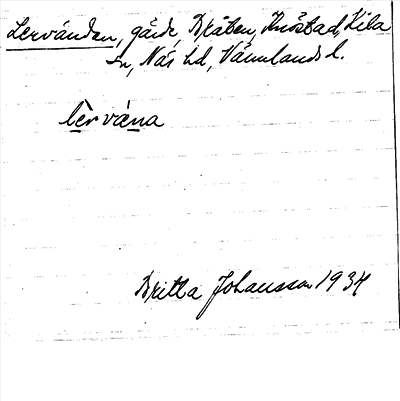 Lervändan, gärde, Bråten, Knöstad, Kila
sn, Näs hd, Värmlands l.
lèrvä́na
Britta Johansson 1934